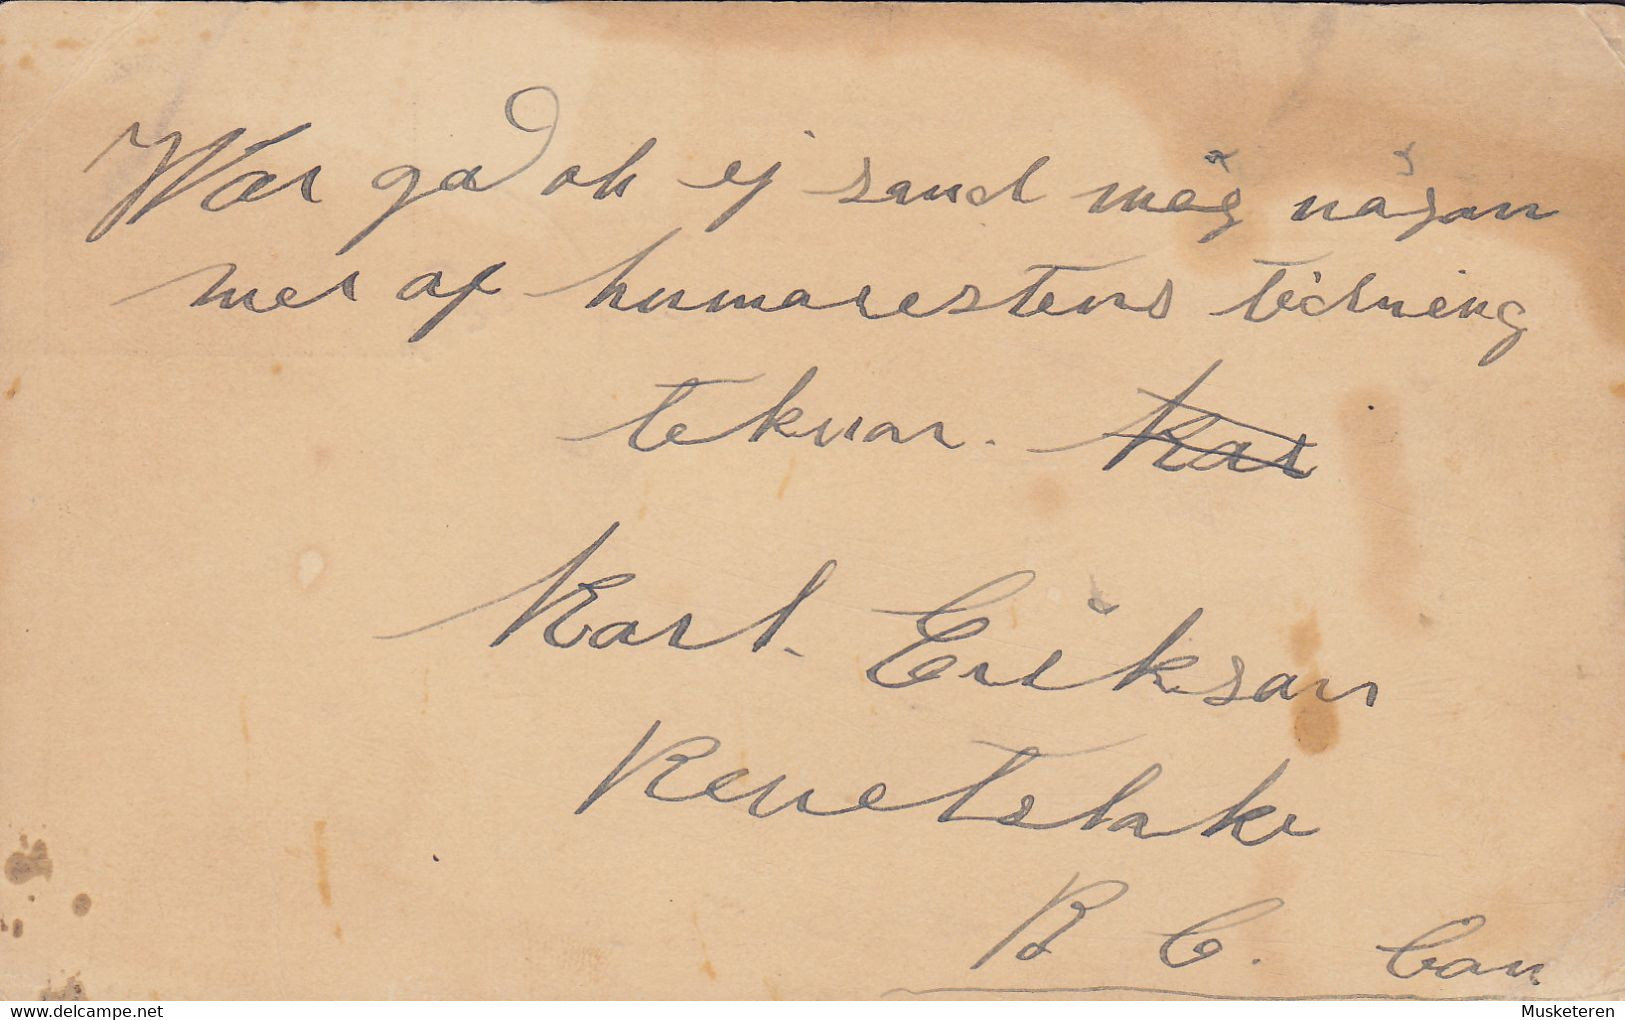 War god ok ej sand mäg någan
mer af humarestens tidning
tekvar. Kar
Karl. Erikson
Renetslake
B C. Can
delcampe.net
Musketeren